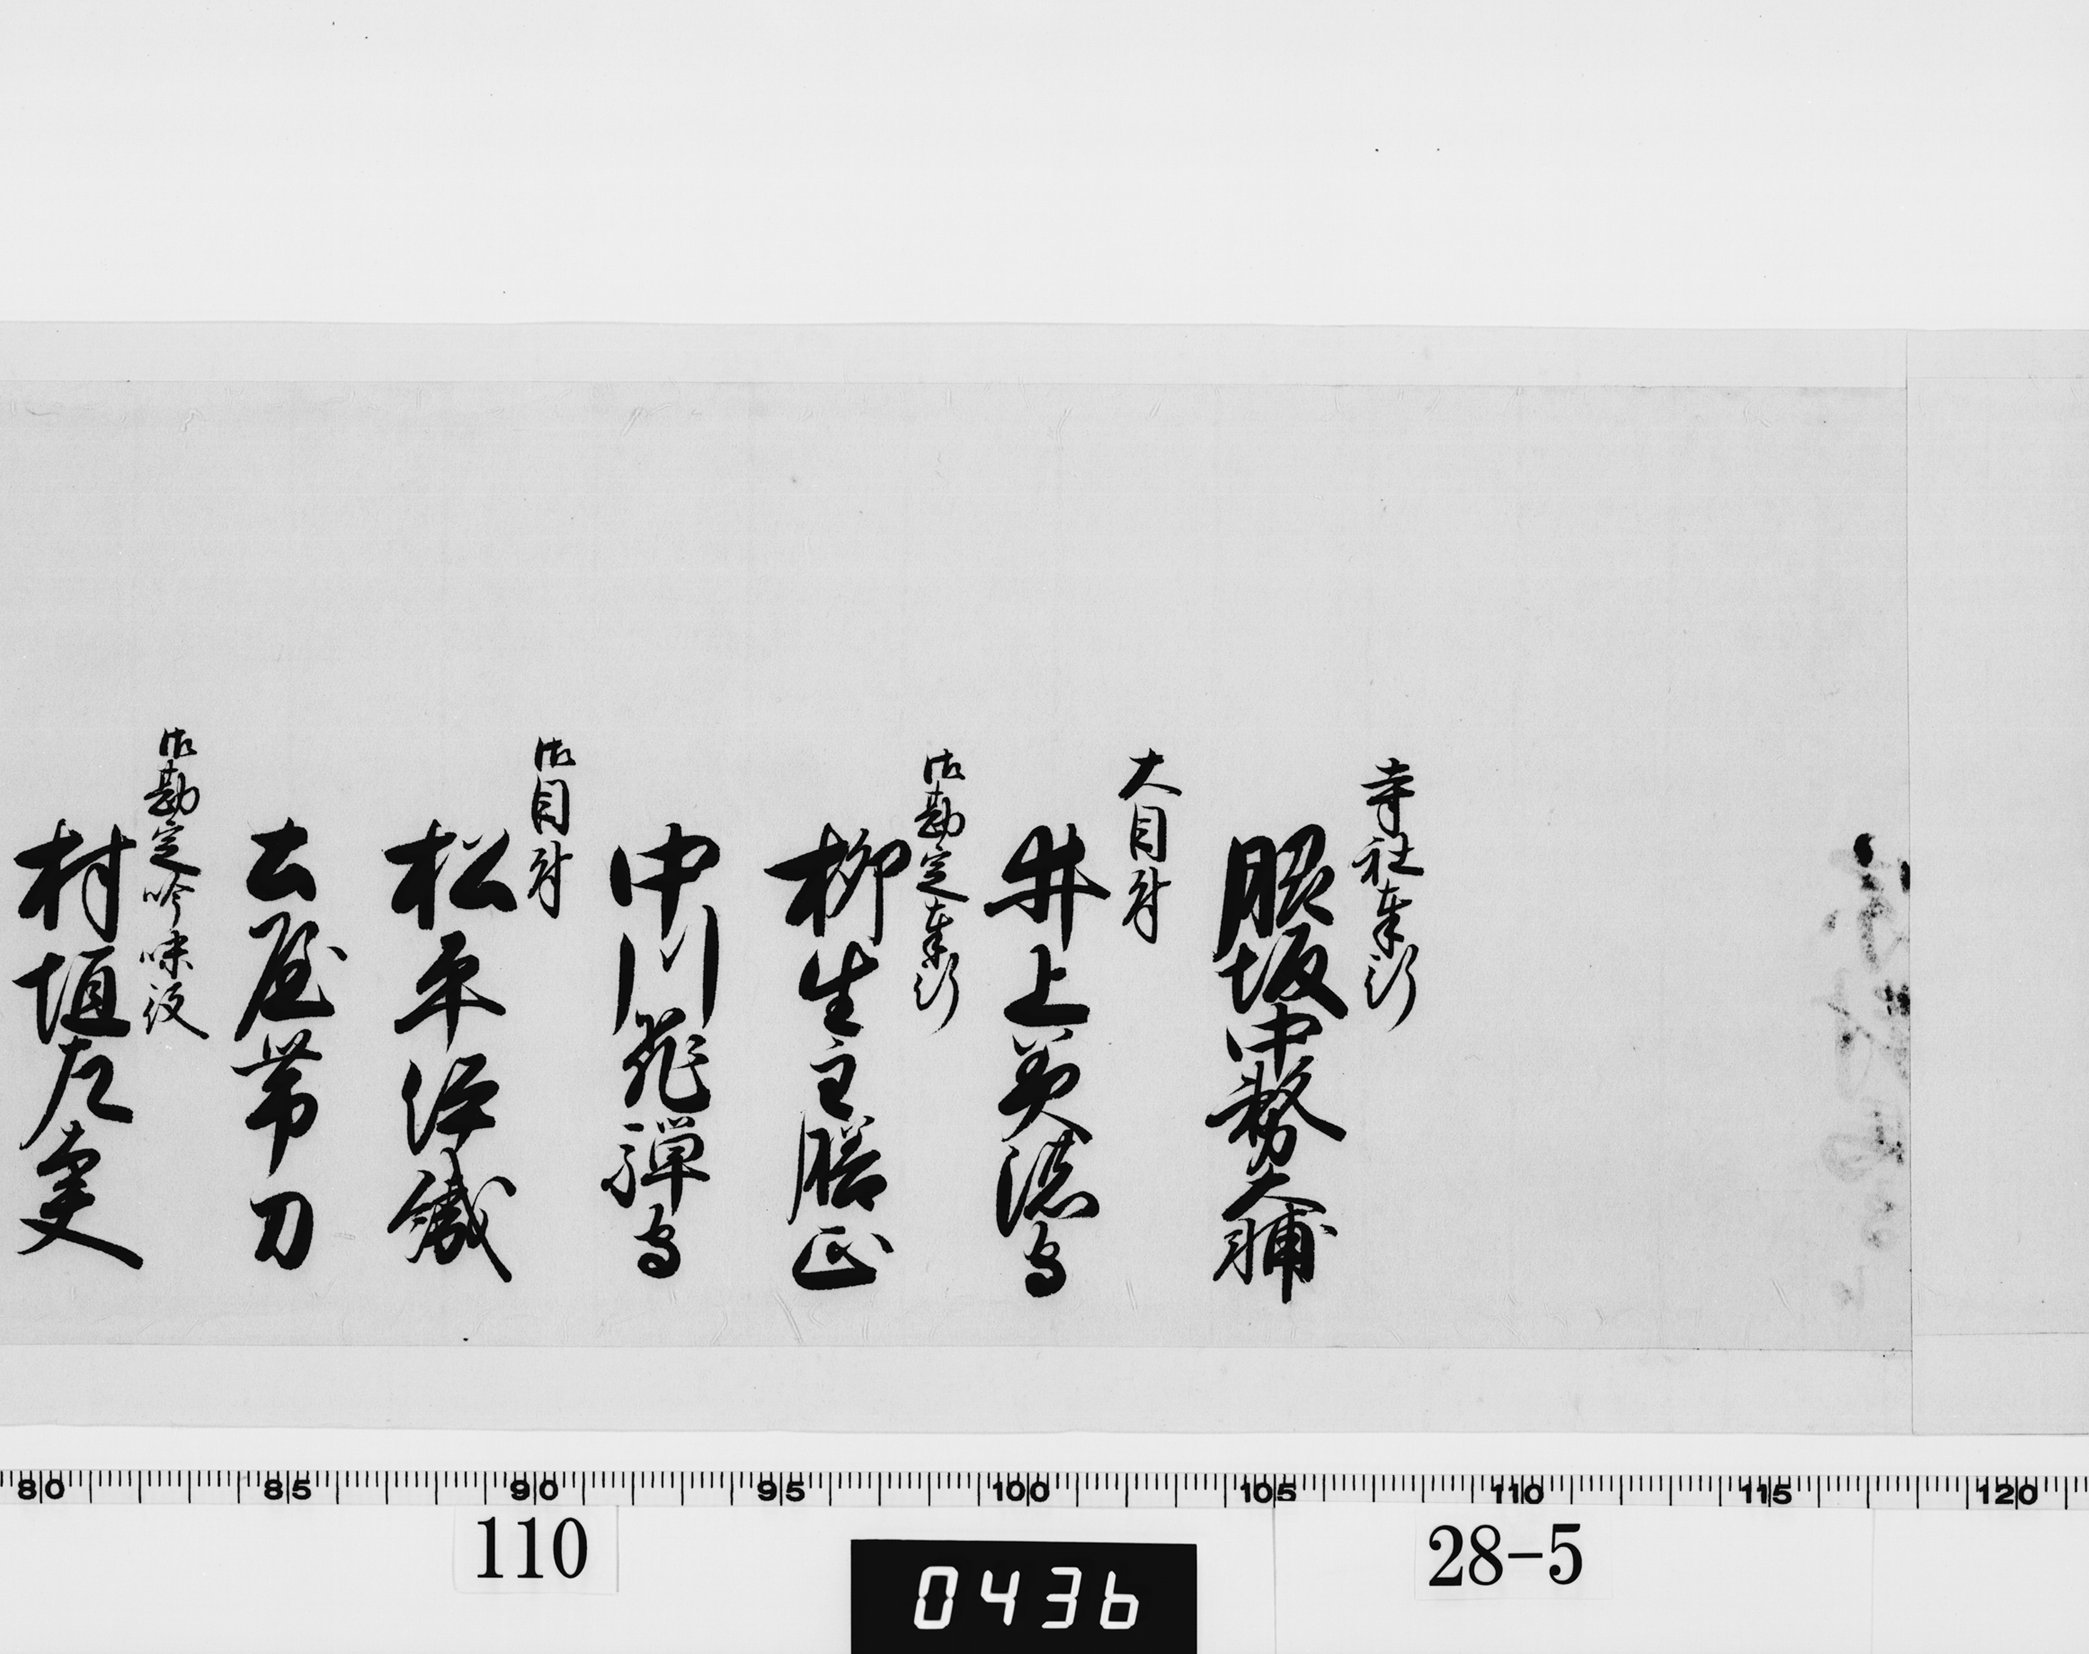 寺社奉行
脇坂中務大輔
大目付
井上美濃守
御勘定奉行
柳生主膳正
中川飛騨守
御目付
松平伊織
土屋帯刀
御勘定吟味役
村垣左太夫
80 85 90 95 100 105 110 115 120
110
28-5
0436